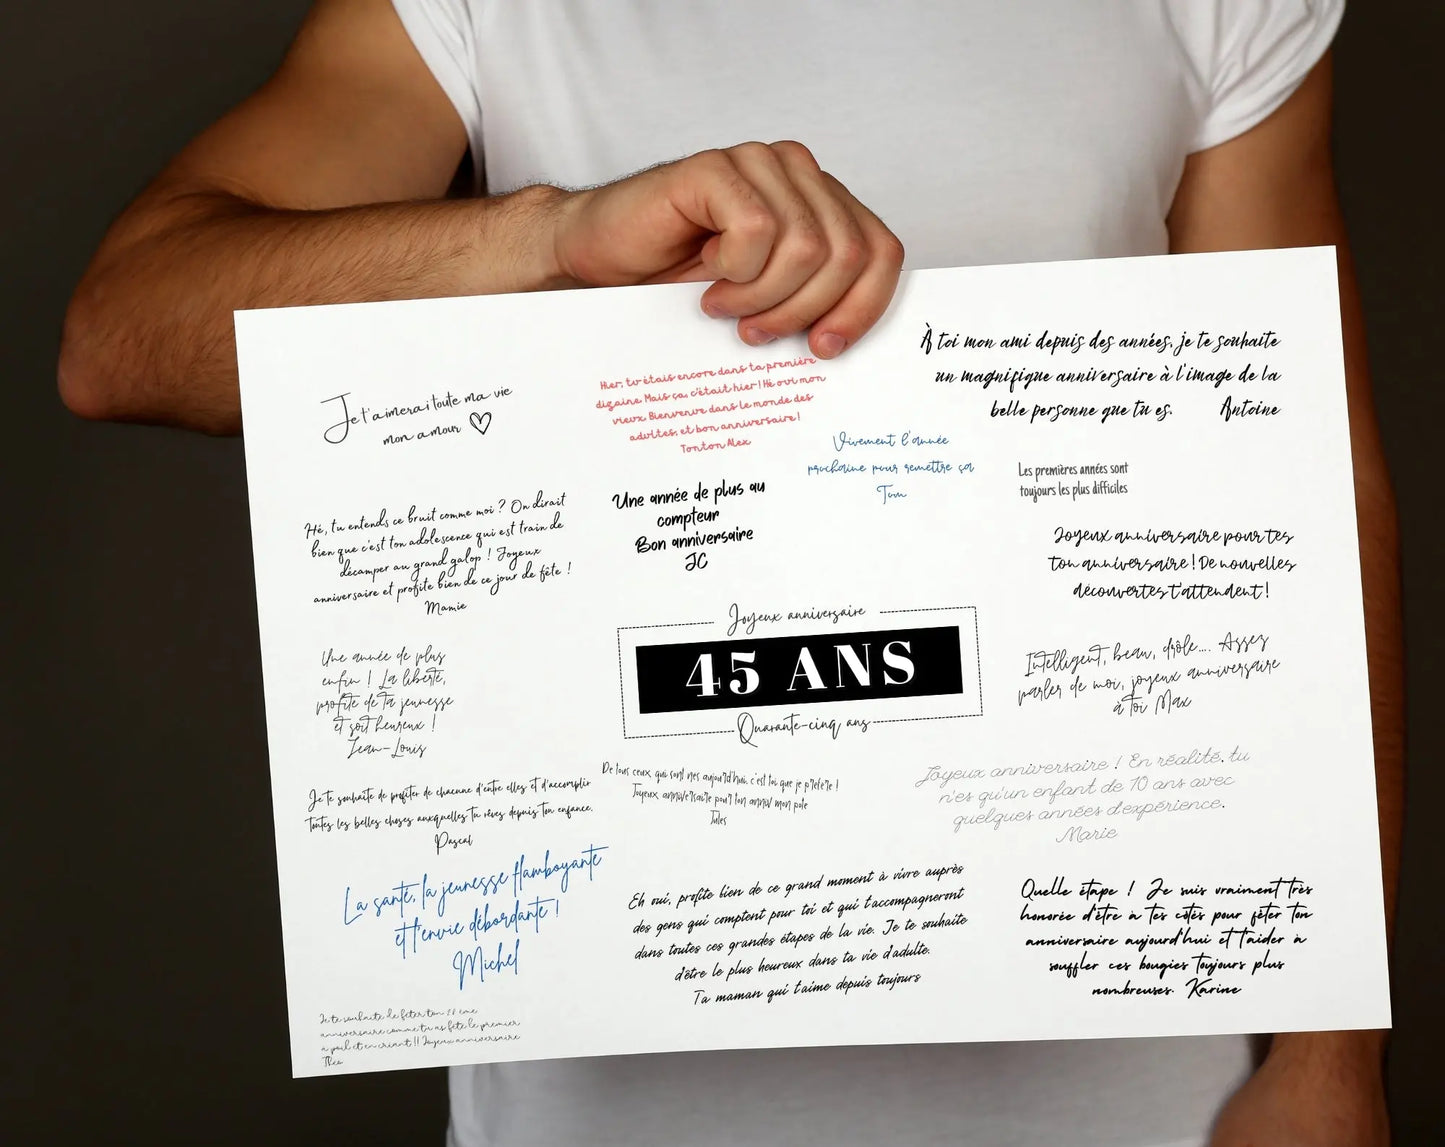 Je t'aimerai toute ma vie
mon amour
Hier, tu étais encore dans ta première
dizaine. Mais ça, c'était hier ! Hé oui mon
vieux. Bienvenue dans le monde des
adultes, et bon anniversaire !
Tonton Alex
À toi mon ami depuis des années, je te souhaite
un magnifique anniversaire à l'image de la
belle personne que tu es. Antoine
Vivement l'année
prochaine pour remettre ça
Tom
Les premières années sont
toujours les plus difficiles
Hé, tu entends ce bruit comme moi ? On dirait
bien que c'est ton adolescence qui est train de
décamper au grand galop ! Joyeux
anniversaire et profite bien de ce jour de fête !
Mamie
Une année de plus au
compteur
Bon anniversaire
JC
Joyeux anniversaire pour tes
ton anniversaire ! De nouvelles
découvertes t'attendent !
Joyeux anniversaire
45 ANS
Quarante-cinq ans
Une année de plus
enfin ! La liberté,
profite de ta jeunesse
et soit heureux !
Jean-Louis
Intelligent, beau, drôle.... Assez
parler de moi, joyeux anniversaire
à toi Max
De tous ceux qui sont nés aujourd'hui, c'est toi que je préfère !
Joyeux anniversaire pour ton anniv mon pote
Jules
Joyeux anniversaire ! En réalité, tu
n'es qu'un enfant de 10 ans avec
quelques années d'expérience.
Marie
Je te souhaite de profiter de chacune d'entre elles et d'accomplir
toutes les belles choses auxquelles tu rêves depuis ton enfance.
Pascal
La santé, la jeunesse flamboyante
et l'envie débordante !
Michel
Eh oui, profite bien de ce grand moment à vivre auprès
des gens qui comptent pour toi et qui t'accompagneront
dans toutes ces grandes étapes de la vie. Je te souhaite
d'être le plus heureux dans ta vie d'adulte.
Ta maman qui t'aime depuis toujours
Quelle étape ! Je suis vraiment très
honorée d'être à tes côtés pour fêter ton
anniversaire aujourd'hui et t'aider à
souffler ces bougies toujours plus
nombreuses. Karine
Je te souhaite de fêter ton
anniversaire comme tu as fêté le premier
à poil et en criant !! Joyeux anniversaire
Théo